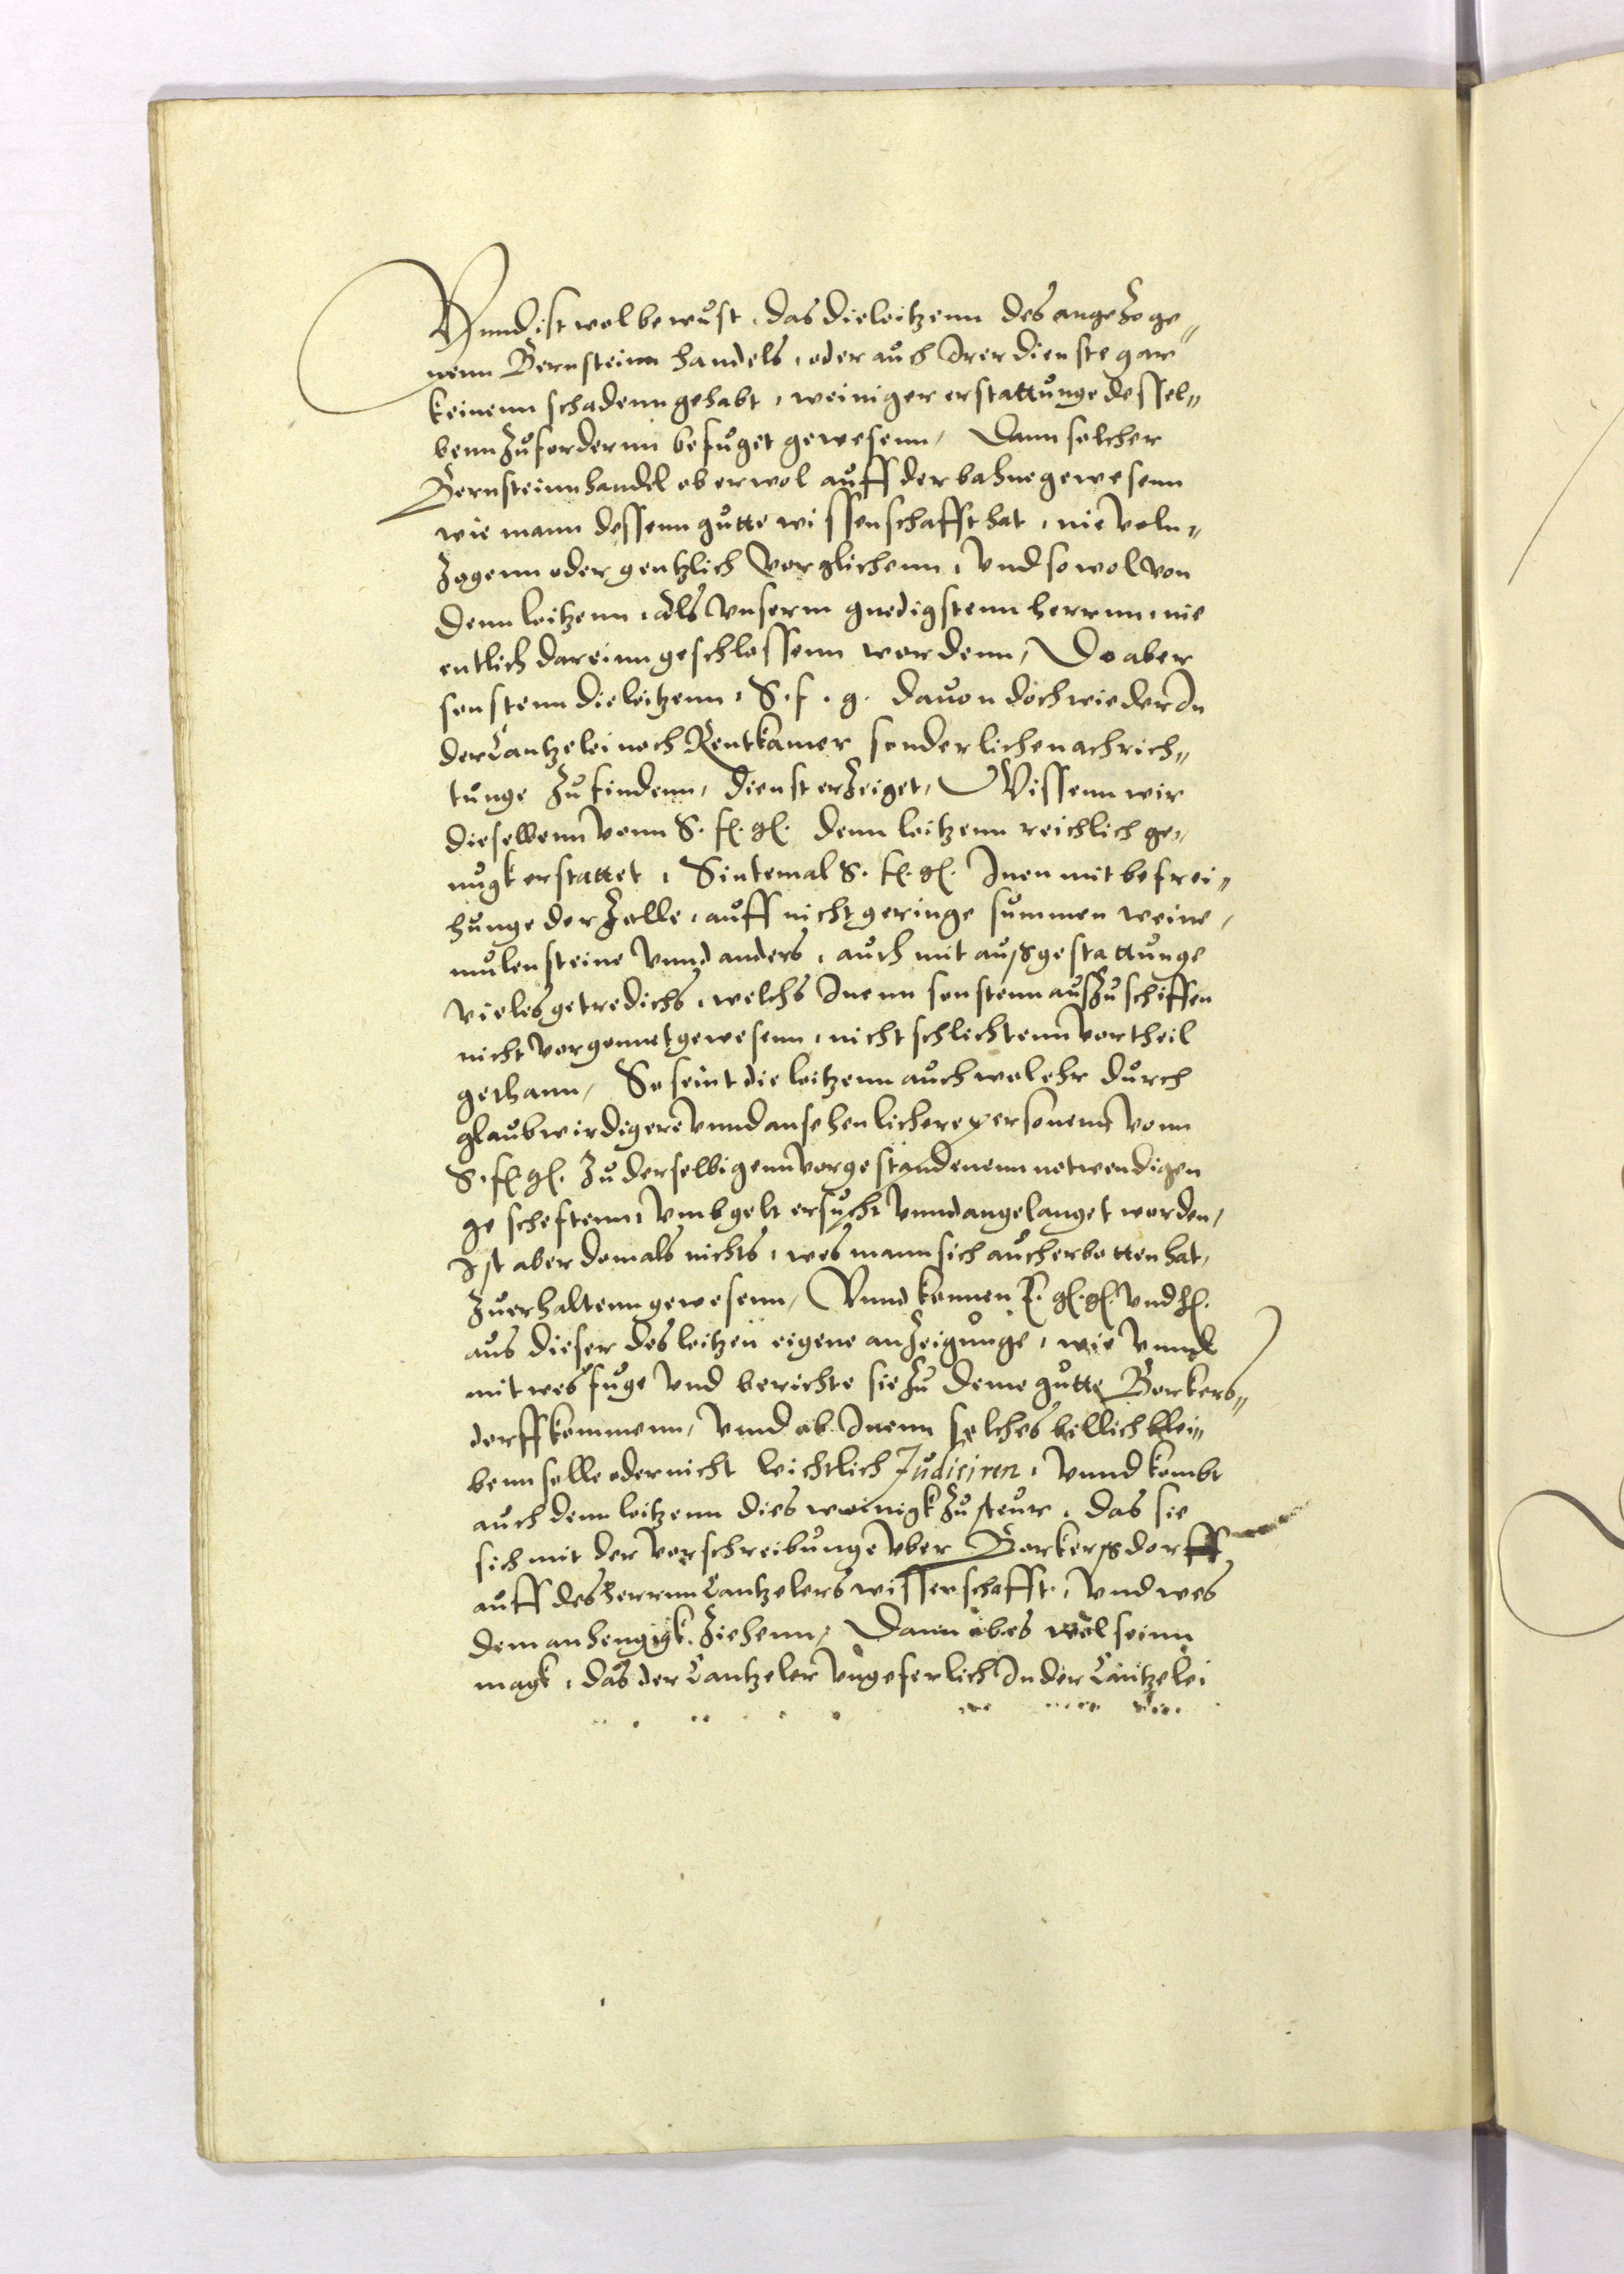 Vnnd ist wol bewust, das die loitzenn des angezoge„
nenn Bernsteinn handels, oder auch Irer dienste gar
keinenn schadenn gehabt, weiniger erstattunge dessel„
benn zufordernn befuget gewesenn, Dann solcher
Bernsteinnhandel ob er wol auff der bahne gewesenn
wie mann dessenn gutte wissenschafft hat, nie voln„
zogenn oder gentzlich vorglichenn, vnd so wol von
denn loitzenn, als vnserm gnedigstenn herrnn, nie
entlich dareinn geschlossenn wordenn, Do aber
sonstenn die loitzenn, S. f. g. dauon doch wieder In
der Cantzelei noch Rentkamer sonderliche nachrich„
tunge zufindenn, dienst erzeiget, Wissenn wir
dieselbenn vonn S. f. g. denn loitzenn reichlich ge„
nugk erstattet, Sintemal S. f. g. Inen mit befrei„
hunge der Zolle, auff nicht geringe summen weine,
mulensteine vnnd anders, auch mit außgestattunge
vieles getredichs, welchs Inenn sonstenn auszuschiffen
nicht vorgonnet gewesenn, nicht schlechtenn vortheil
gethann, So seint die loitzenn auch wol ehr durch
glaubwirdigere vnnd ansehenlichere personenn vonn
S. f. g. zu derselbigenn vorgestandenenn notwendigen
gescheftenn vmb gelt ersucht vnnd angelanget worden,
Ist aber domals nichts, wes mann sich auch erbotten hat,
zuerhaltenn gewesenn, Vnnd konnen E. g. g. vnd h.
aus dieser des loitzen eigene anzeigunge, wie vnnd
mit wes fuge vnd berichte sie zu deme gutte Borkers„
dorff kommenn, vnnd ob Inenn solches billich blei„
benn solle oder nicht leichtlich Judiciren, vnnd kombt
auch denn loitzenn dies weinigk zu steur, das sie
sich mit der vorschreibunge vber Borkerßdorff
auff des herrnn Cantzelers wissenschafft, vnd wes
dem anhengigk, ziehenn, Dann ob es wol seinn
magk, das der Cantzeler vngeferlich In der Cantzelei